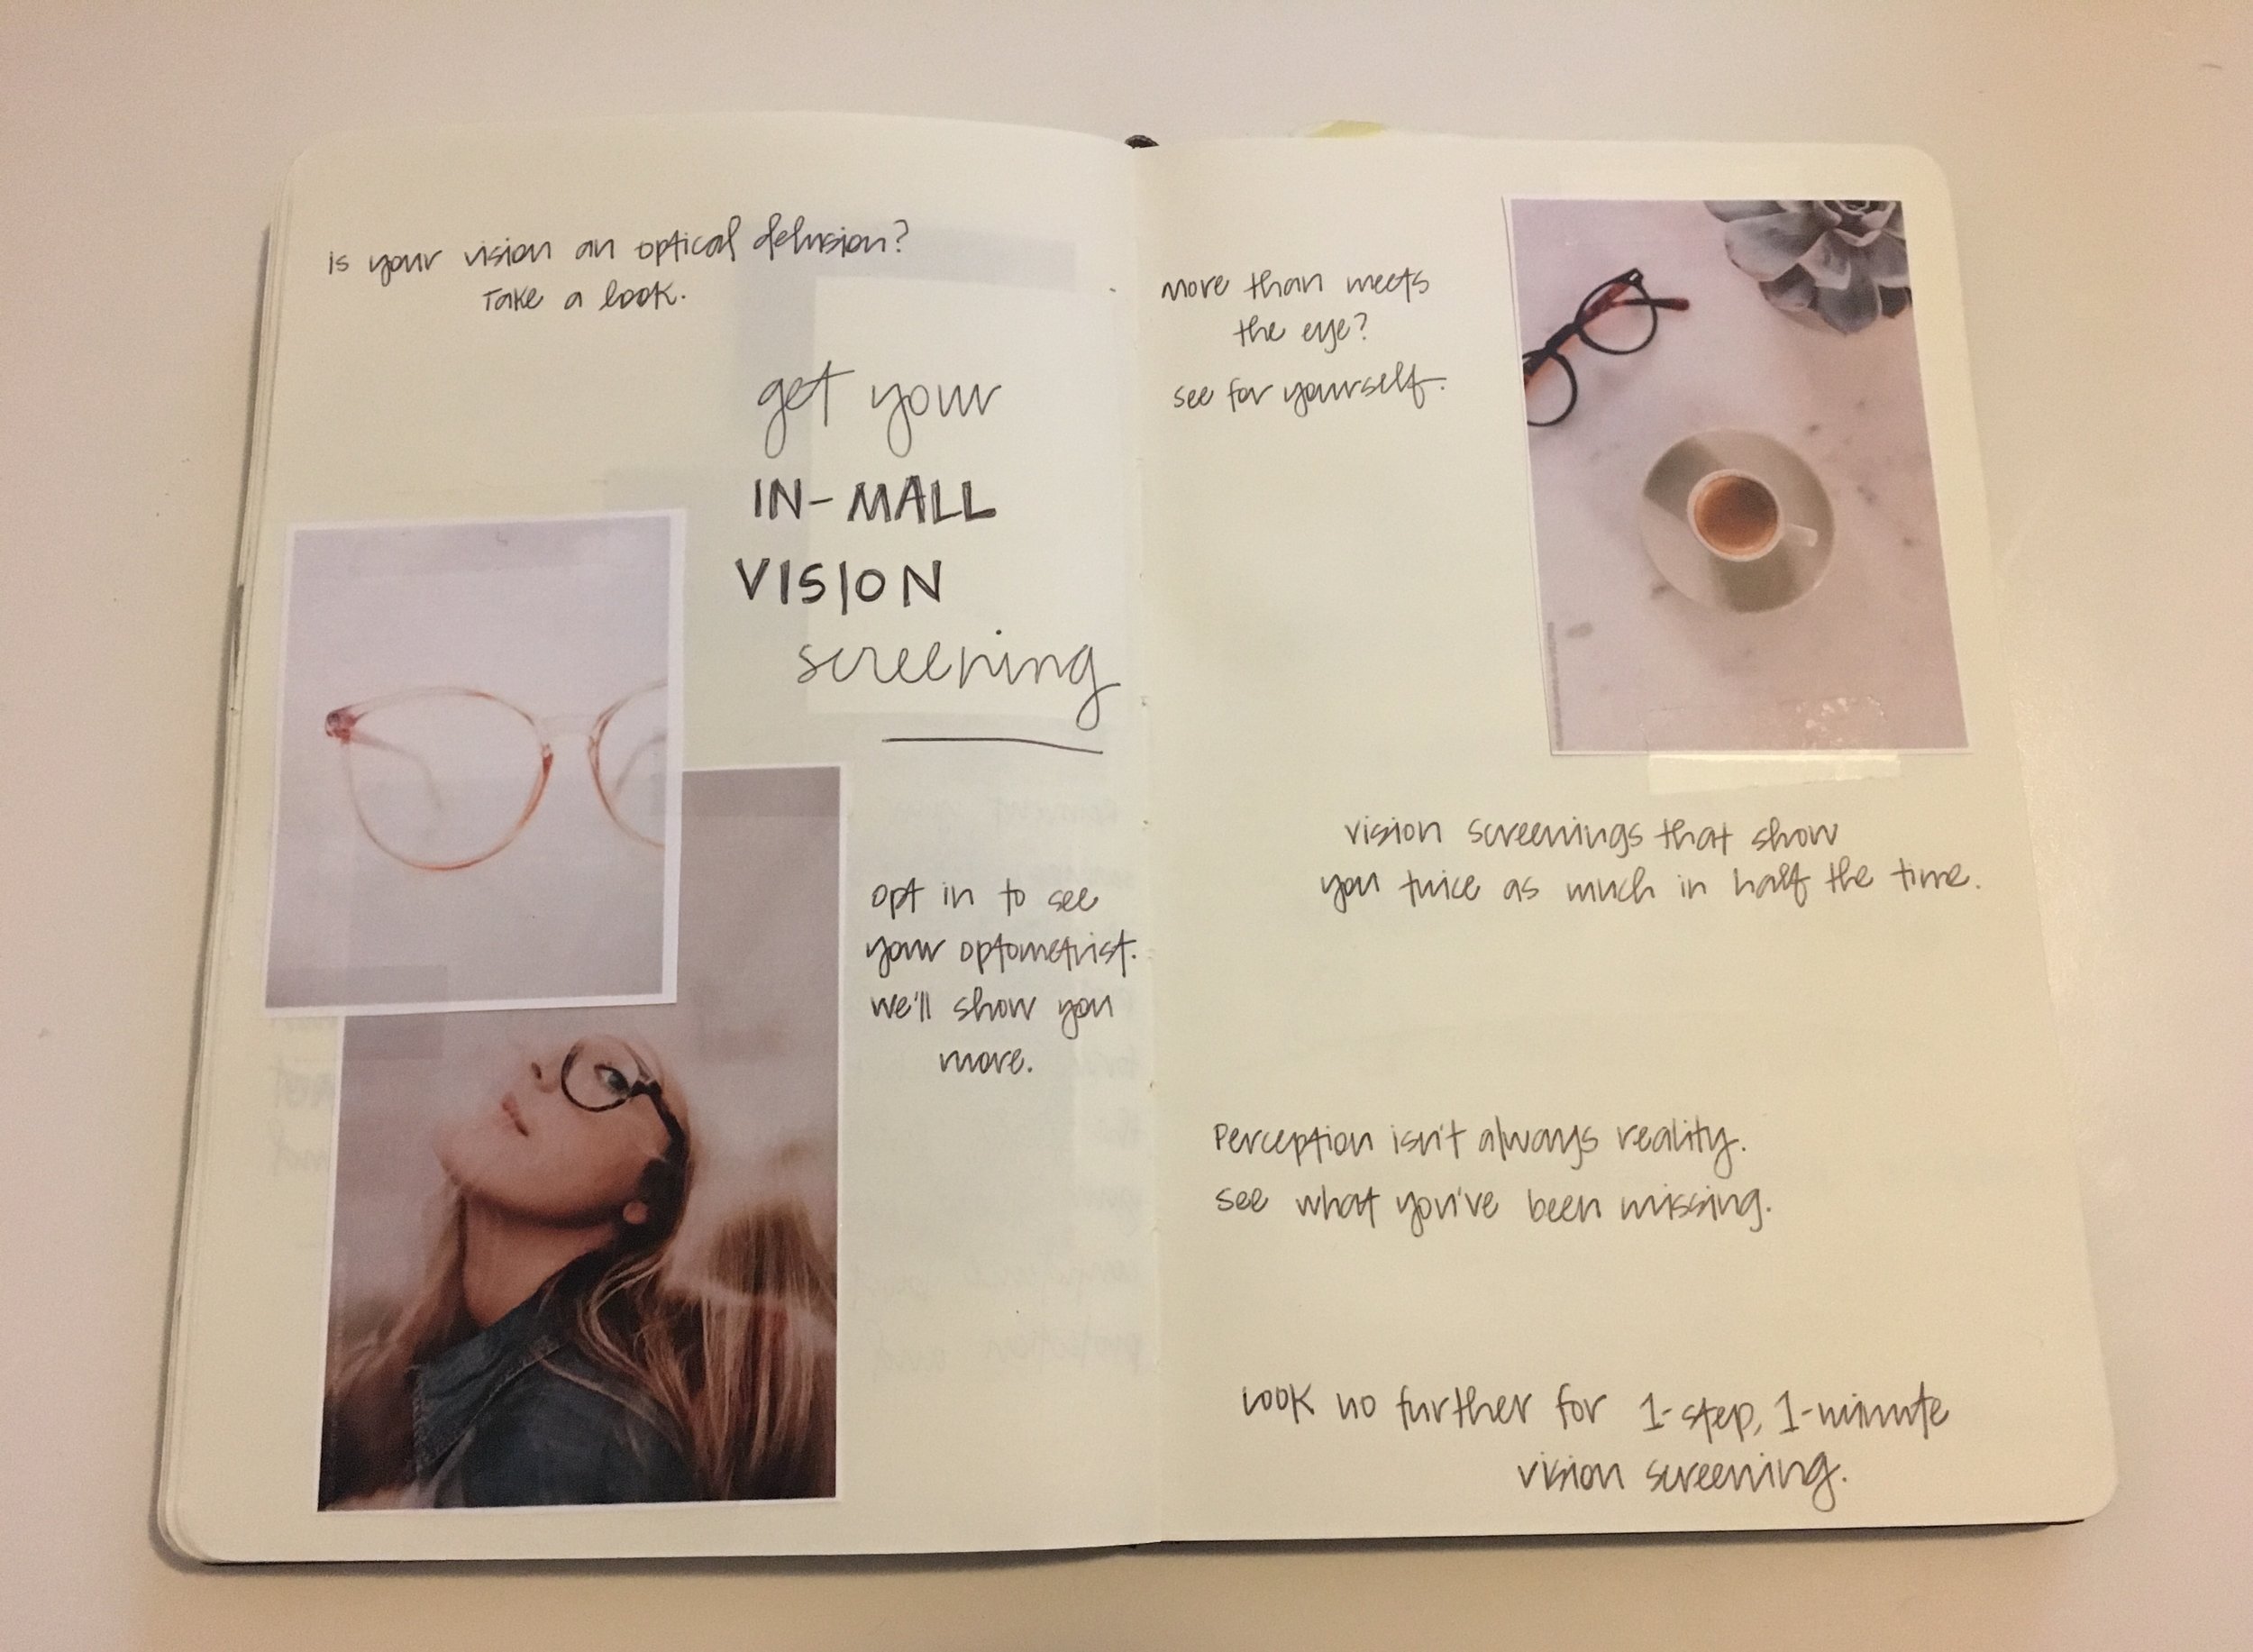 is your vision an optical delusion?
Take a look.
get your
IN-MALL
VISION
screening
opt in to see
your optometrist.
we'll show you
more.
more than meets
the eye?
see for yourself.
vision screenings that show
you twice as much in half the time.
Perception isn't always reality.
see what you've been missing.
look no further for 1-step, 1-minute
vision screening.